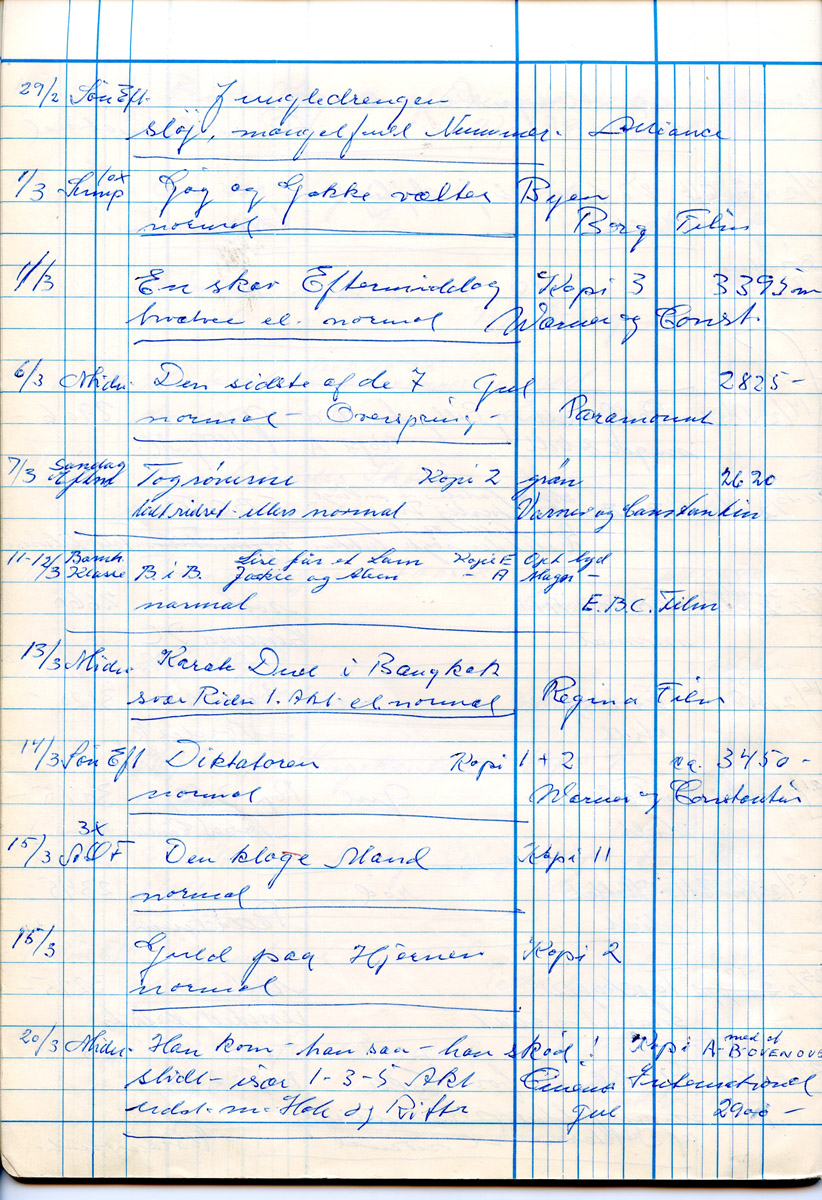 29/2 Søn Eft. Jungledrengen
sløj, mangelfuld Nummer. Alliance
1/3 Gøg og Gokke vælter Byen
normal Borg Film
1/3 En skør Eftermiddag Kopi 3 3395 m
el. normal Warner og Const.
6/3 Midn. Den sidste af de 7 Gul 2825 -
normal - Overspring - Paramount
7/3 Søndag Eftm Togrøverne Kopi 2 grøn 2620
ellers normal Varner og Constantin
11-12/3 Barnk. Klasse B. i B. Lise får et Lam Kopi E Opt lyd
Jackie og Aben - A Magn -
normal E.B.C. Film
13/3 Midn. Karate Duel i Bangkok
svær Ridn 1. Akt el normal Regina Film
14/3 Søn Eft Diktatoren Kopi 1 + 2 ca. 3450 -
normal Warner og Constantin
3x
15/3 Den kloge Mand Kopi 11
normal
15/3 Guld paa Hjernen Kopi 2
normal
20/3 Midn. Han kom - han saa - han skød! Kopi A-B
slidt - især 1-3-5 Akt Cinema International
Hak og Rifter gul 2900 -